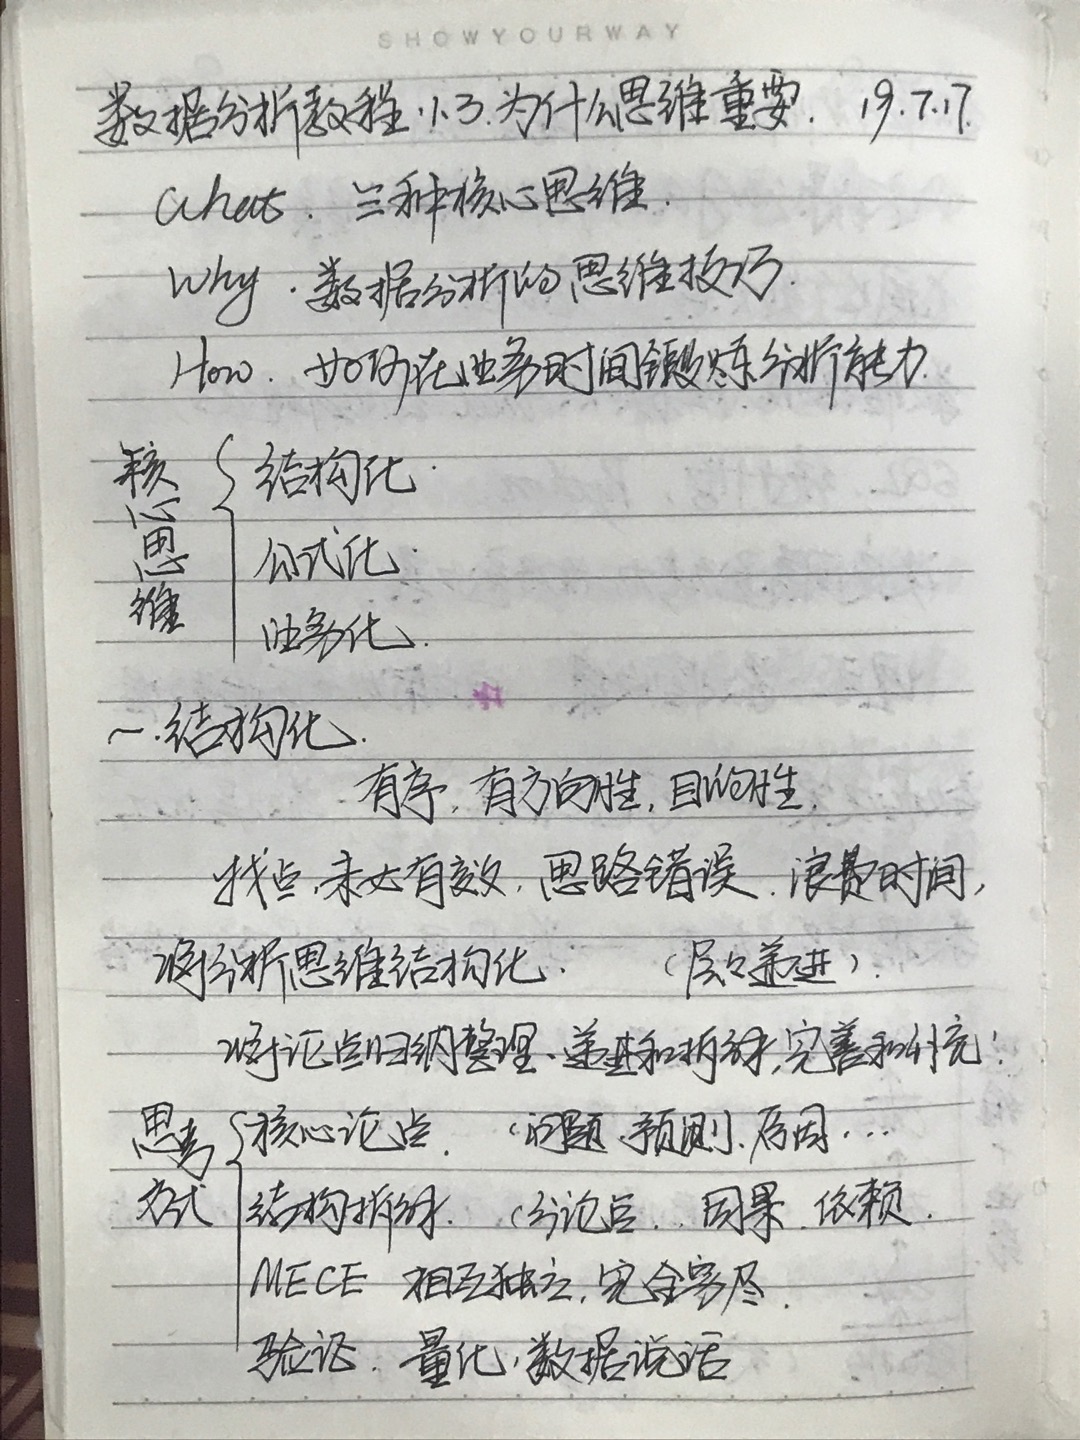 SHOWYOURWAY
数据分析教程.1.3.为什么思维重要. 19.7.17.
What. 三种核心思维.
Why. 数据分析的思维技巧.
How. 如何在业务时间锻炼分析能力.
核心思维
结构化.
公式化.
业务化.
一.结构化.
有序,有方向性,目的性.
找点,未必有效,思路错误.浪费时间,
将分析思维结构化. (层々递进).
将论点归纳整理、递进和拆解,完善和补充!
思考方式
核心论点. (问题、预测、原因...
结构拆解. (分论点..因果.依赖.
MECE 相互独立,完全穷尽.
验证. 量化,数据说话